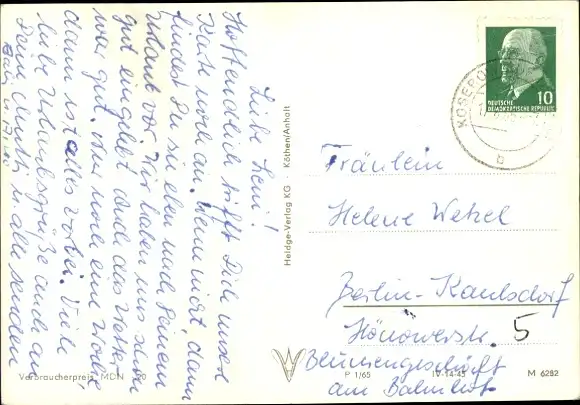 Liebe Leni!
Hoffentlich trifft Dich unsere
Karte noch an. Wenn nicht, dann
findest Du sie eben nach Deinem
Urlaub vor. Wir haben uns schon
gut eingelebt. Auch das Wetter
war gut. Nur noch eine Woche
dann ist alles vorbei. Viele
liebe Urlaubsgrüße auch an
Deine Mutti u. alle senden
KOSEROW
10
DEUTSCHE
DEMOKRATISCHE REPUBLIK
b
Fräulein
Helene Wetzel
Berlin-Kaulsdorf
Hönowerstr. 5
Blumengeschäft
am Bahnhof
Heldge-Verlag KG Köthen/Anhalt
Verbraucherpreis MDN
P 1/65 IV-14-45 M 6282